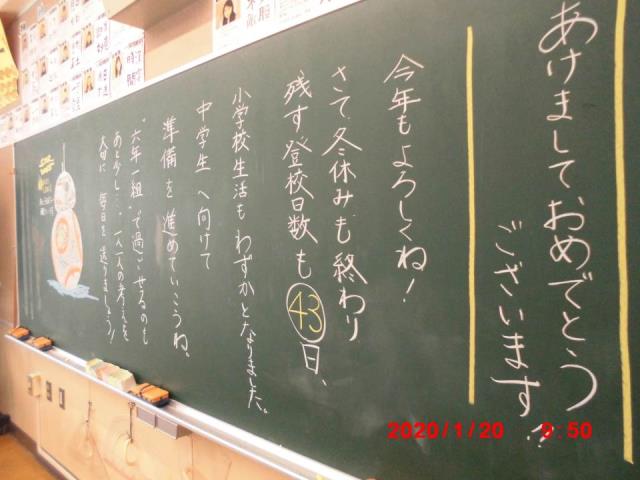 あけましておめでとう
ございます!!
今年もよろしくね!
さて、冬休みも終わり
残す登校日数も㊸日、
小学校生活もわずかとなりました。
中学生へ向けて
準備を進めていこうね。
"六年一組"で過ごせるのも
あと少し…。一人一人の考えを
大切に毎日を送りましょう!
2020/1/20 9:50